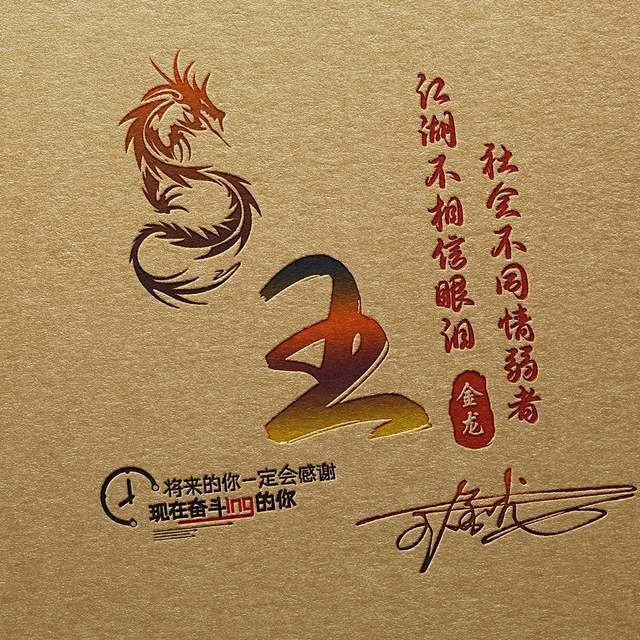 江湖不相信眼泪
社会不同情弱者
金龙
王
将来的你一定会感谢
现在奋斗ing的你
王金龙